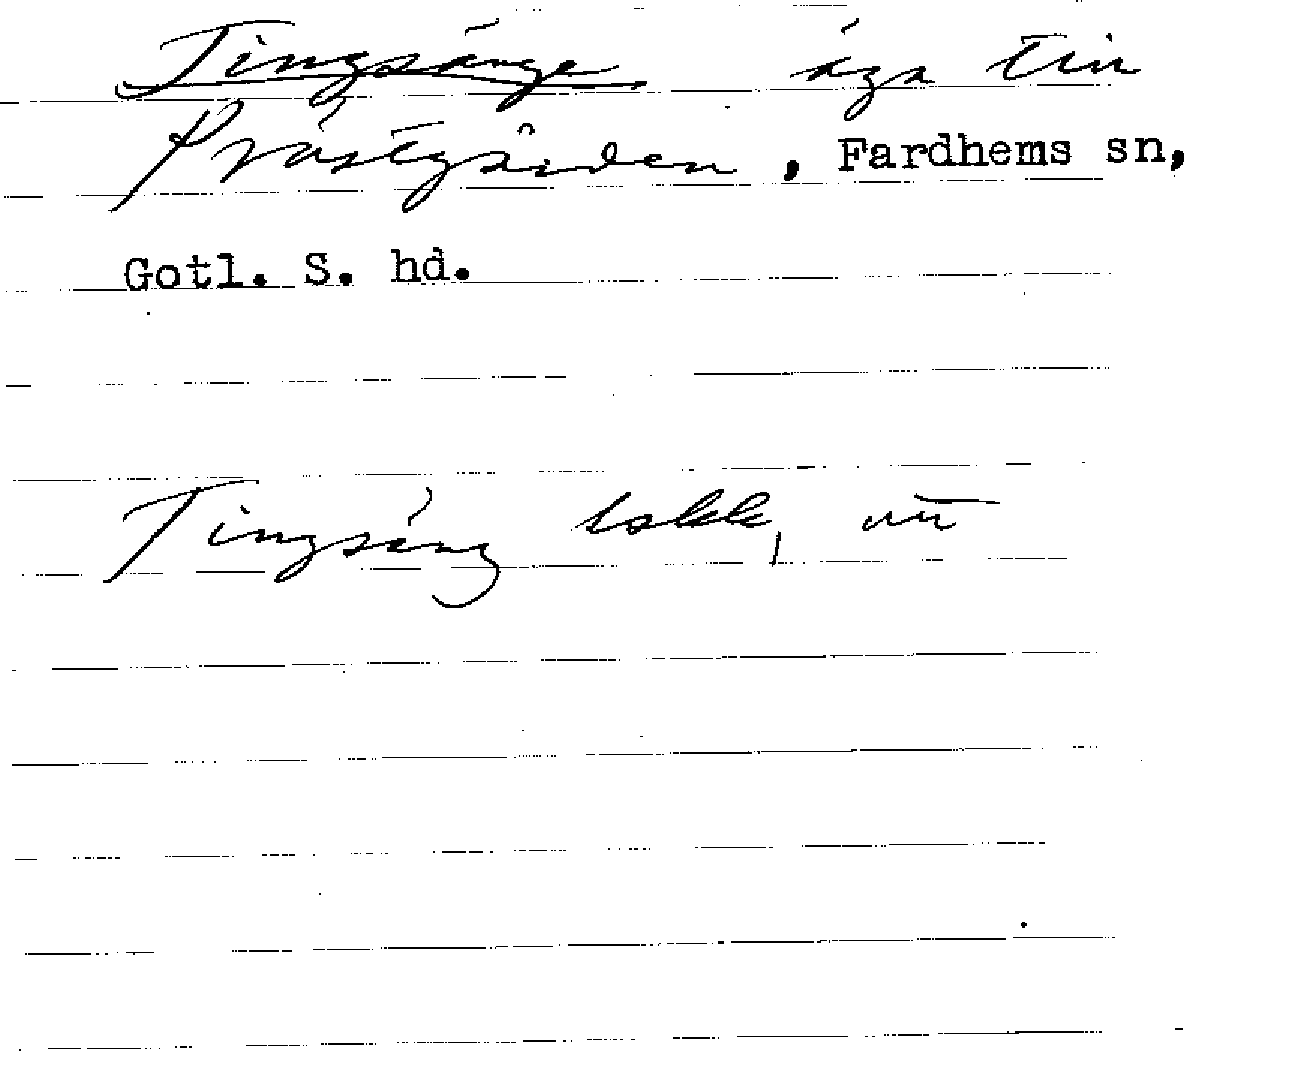 Tingsänge äga till
Prästgården, Fardhems sn,
Gotl. S. hd.
Tingsäng